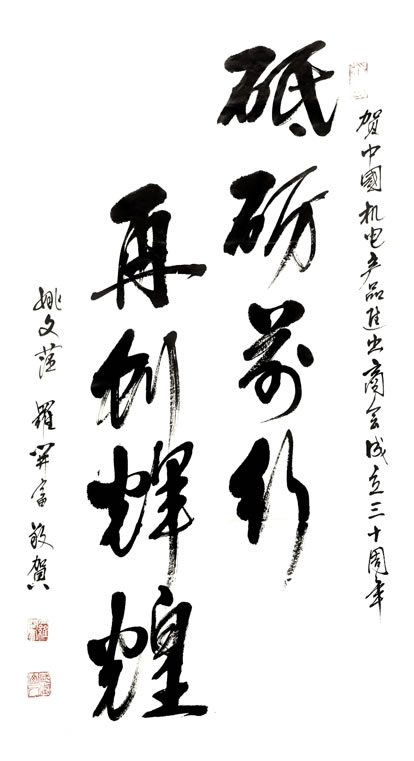 贺中國机电产品進出商会成立三十周年
砥砺前行
再创辉煌
姚文萍 罗开富 敬贺